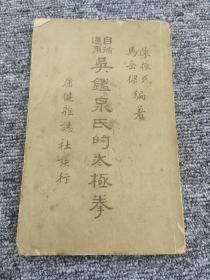 陳振民
馬岳樑
編著
自習
適用
吳鑑泉氏的太極拳
康健雜誌社發行